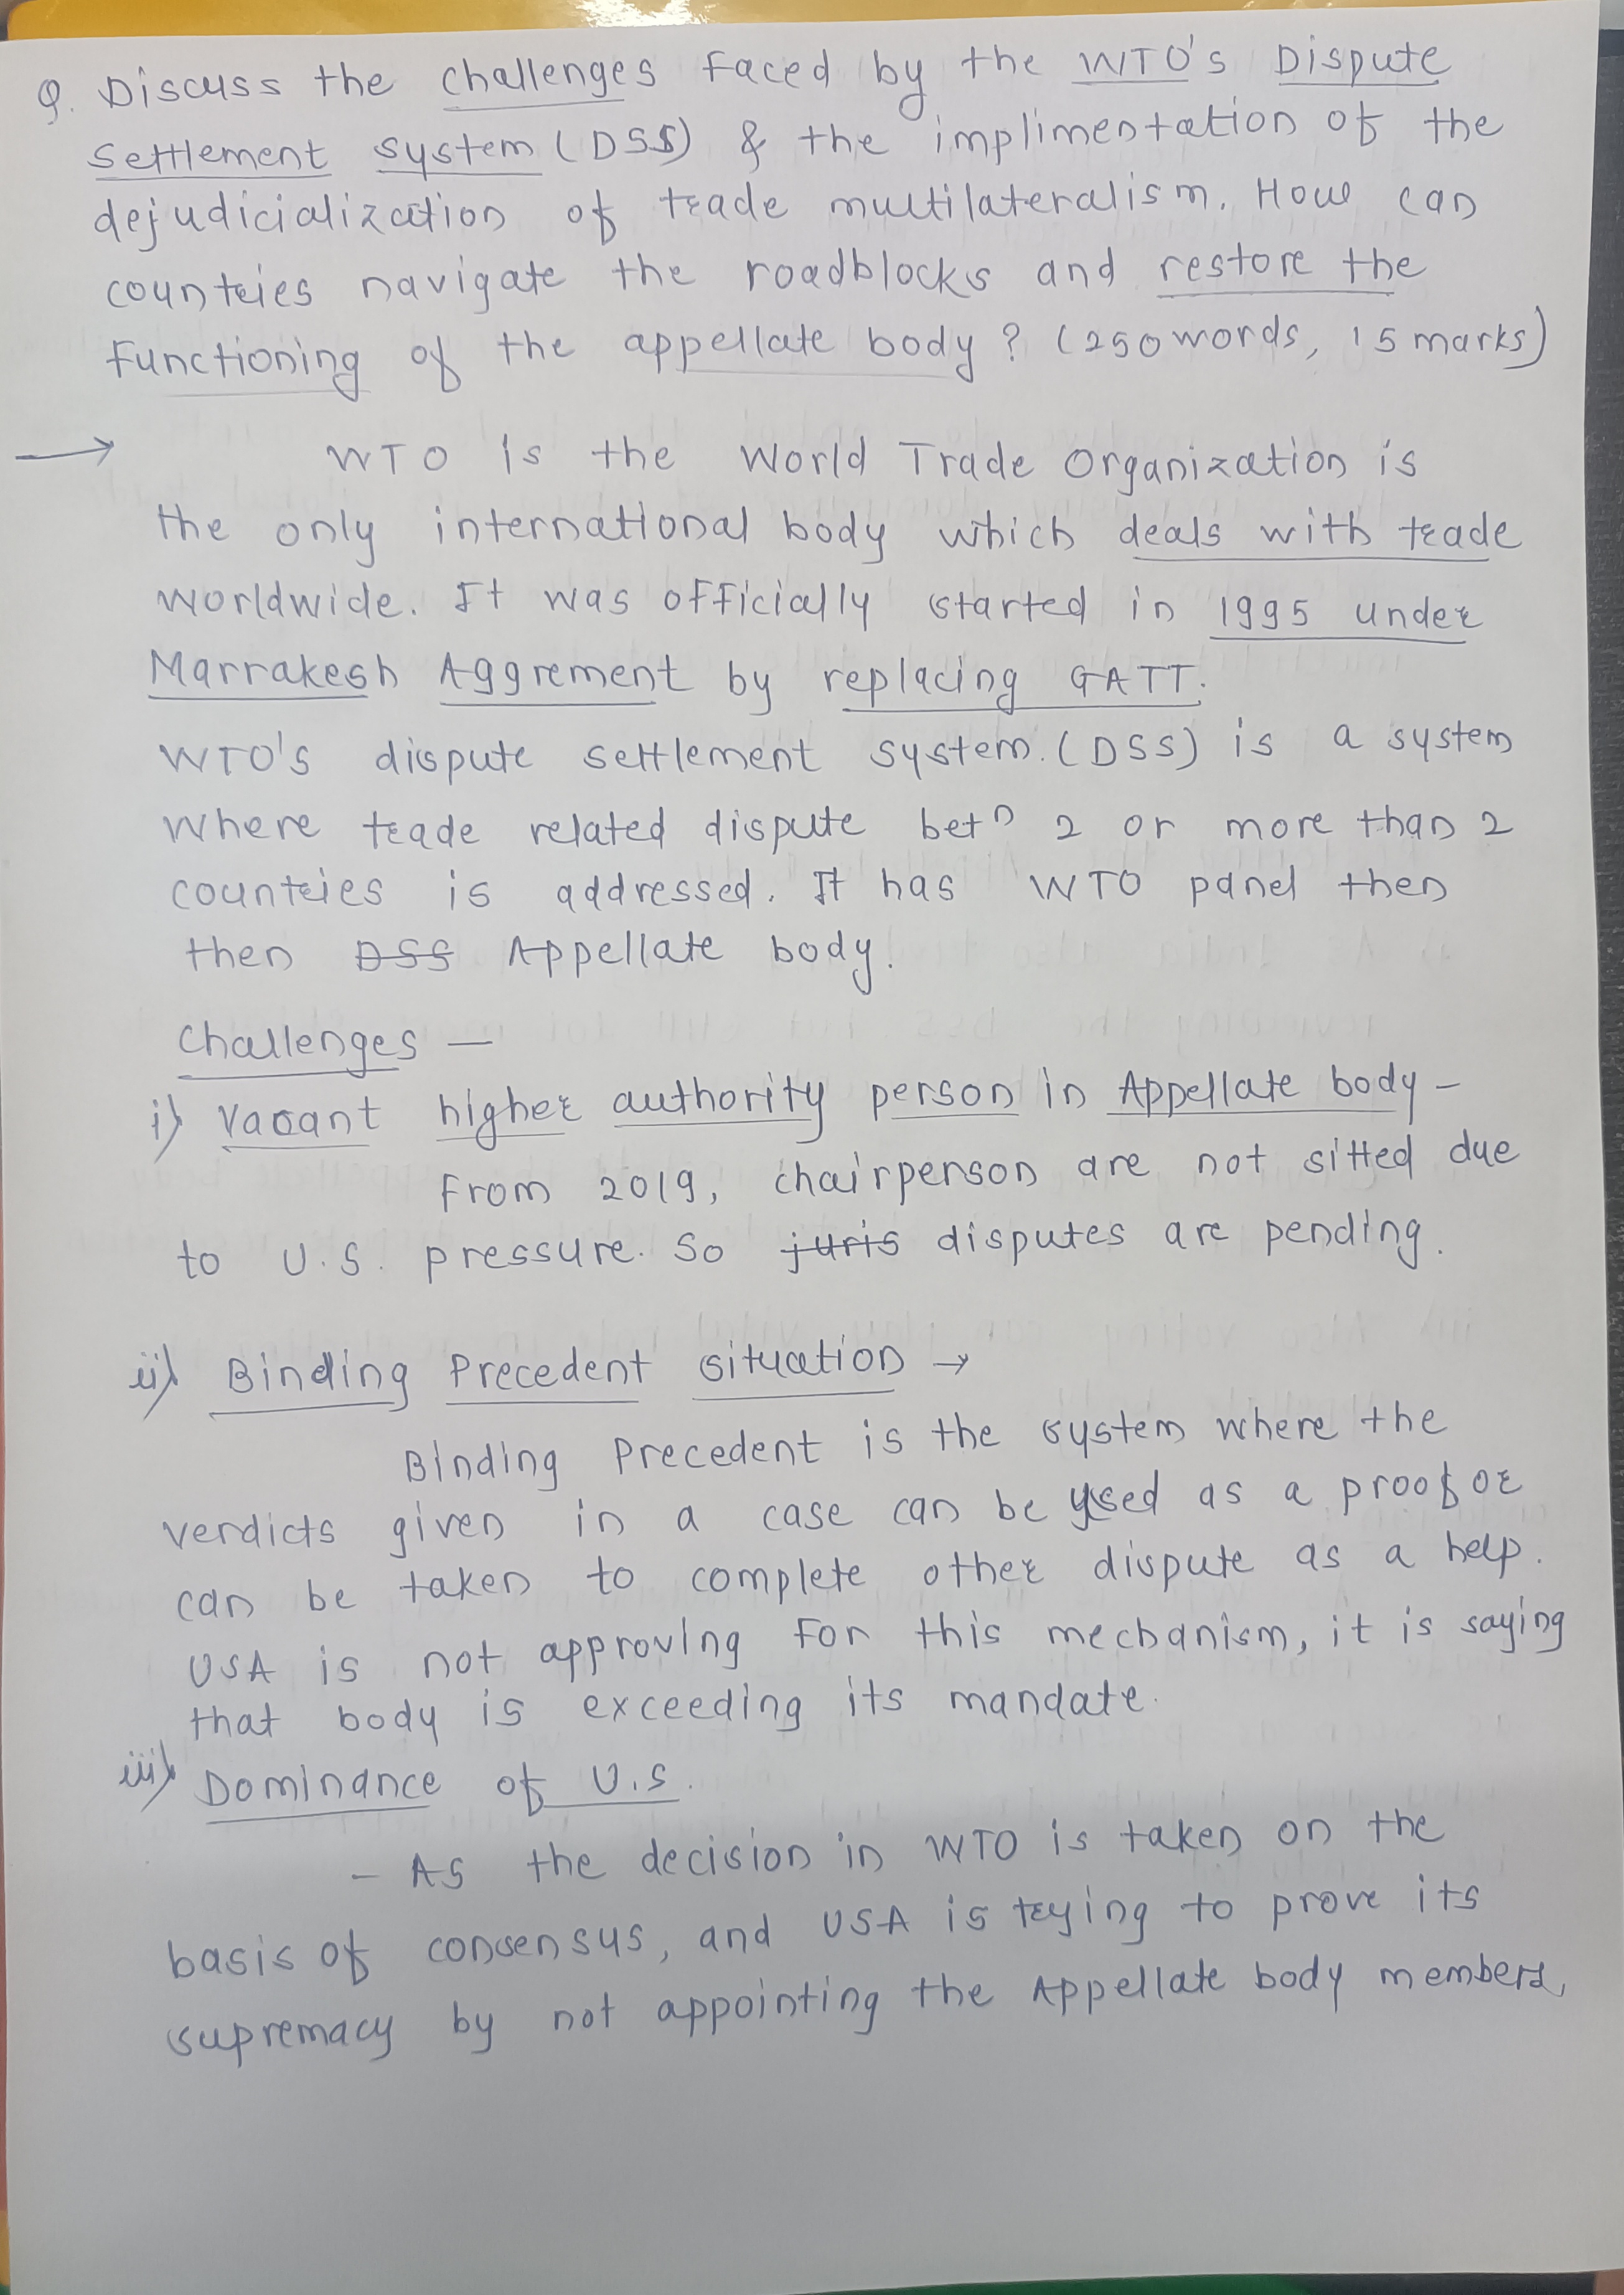 Q. Discuss the challenges faced by the WTO's Dispute
settlement system (DSS) & the implimentation of the
dejudicialization of trade multilateralism. How can
countries navigate the roadblocks and restore the
functioning of the appellate body? (250 words, 15 marks)
→ WTO is the World Trade Organization is
the only international body which deals with trade
worldwide. It was officially started in 1995 under
Marrakesh Aggrement by replacing GATT.
WTO's dispute settlement system. (DSS) is a system
where trade related dispute betn 2 or more than 2
countries is addressed. It has WTO panel then
then DSS Appellate body.
Challenges —
i) Vacant higher authority person in Appellate body –
From 2019, chairperson are not sitted due
to U.S. pressure. So juris disputes are pending.
ii) Binding Precedent situation →
Binding Precedent is the system where the
verdicts given in a case can be used as a proof or
can be taken to complete other dispute as a help.
USA is not approving for this mechanism, it is saying
that body is exceeding its mandate.
iii) Dominance of U.S.
– As the decision in WTO is taken on the
basis of consensus, and USA is trying to prove its
supremacy by not appointing the Appellate body members,